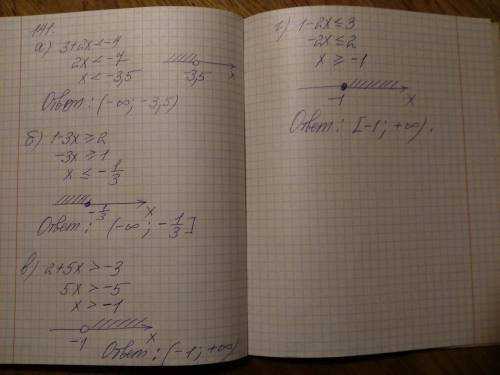 141.
а) 3+2x<-4
2x<-7
x<-3,5
-3,5 x
Ответ: (-∞; -3,5)
б) 1-3x≥2
-3x≥1
x≤-1/3
-1/3 x
Ответ: (-∞; -1/3]
в) 2+5x>-3
5x>-5
x>-1
-1 x
Ответ: (-1; +∞)
г) 1-2x≤3
-2x≤2
x≥-1
-1 x
Ответ: [-1; +∞).